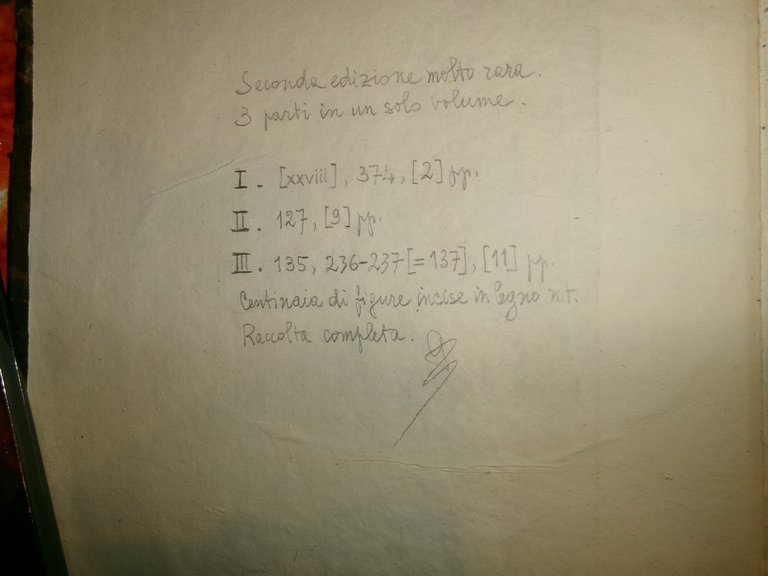 Seconda edizione molto rara.
3 parti in un solo volume.
I. [xxviii], 374, [2] pp.
II. 127, [9] pp.
III. 135, 236-237 [=137], [11] pp.
Centinaia di figure incise in legno n.t.
Raccolta completa.